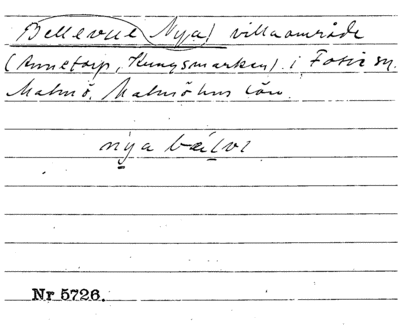 Bellevue Nya) villaområde
(Annetorp, Kungsmarken) i Fosie sn.
Malmö. Malmöhus län.
nya bälvi
Nr 5726.